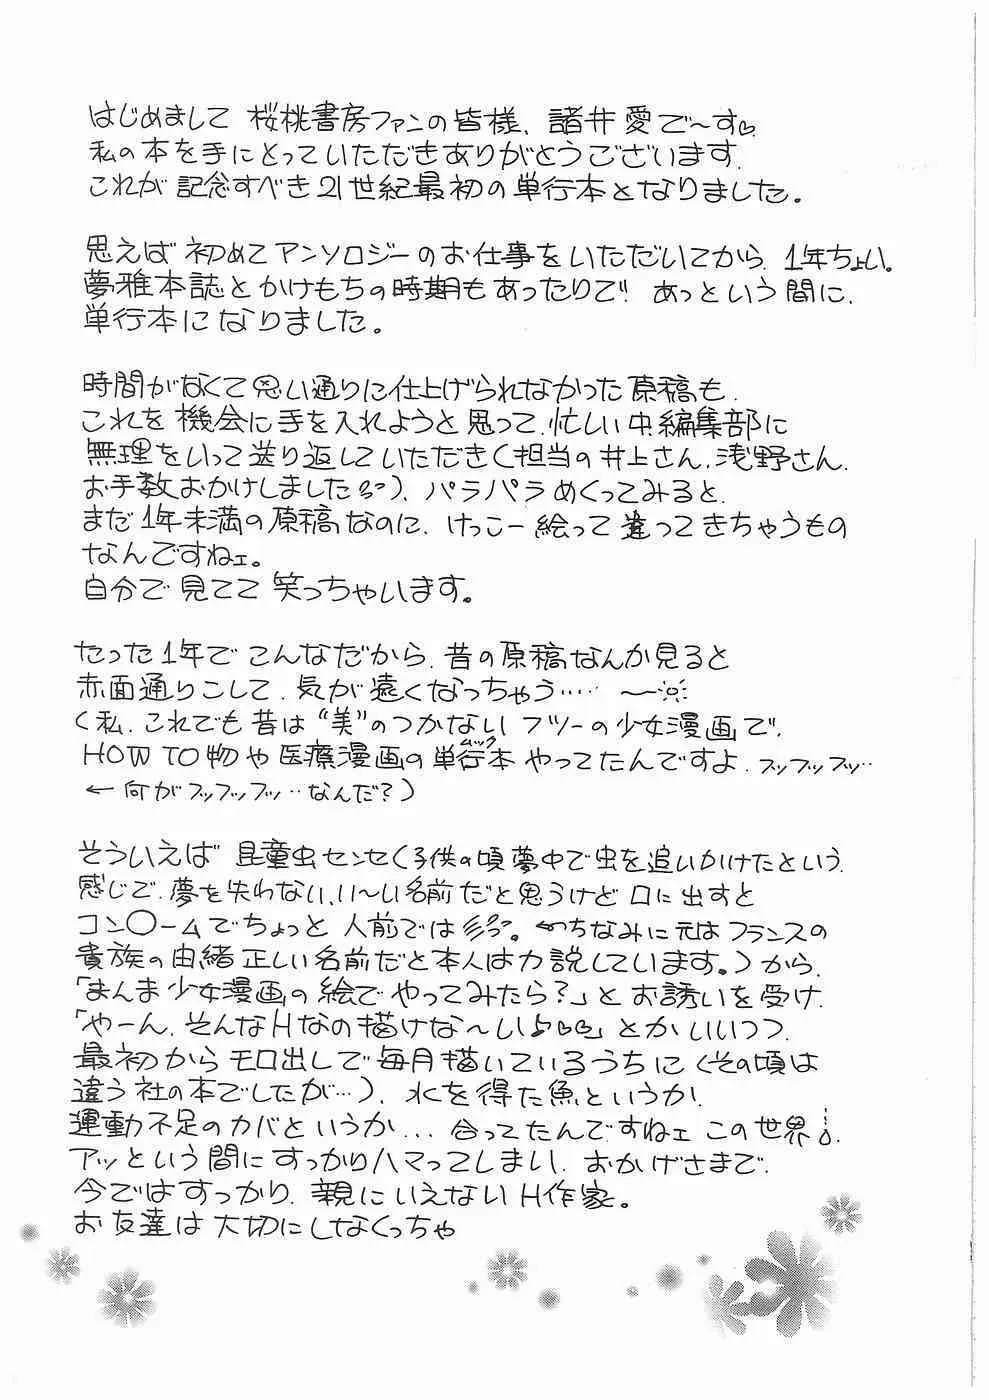 はじめまして 桜桃書房ファンの皆様、諸井愛で〜す♡
私の本を手にとっていただきありがとうございます。
これが記念すべき21世紀最初の単行本となりました。
思えば初めてアンソロジーのお仕事をいただいてから、1年ちょい。
夢雅本誌とかけもちの時期もあったりで、あっという間に、
単行本になりました。
時間がなくて思い通りに仕上げられなかった原稿も、
これを機会に手を入れようと思って、忙しい中、編集部に
無理をいって送り返していただき(担当の井上さん、浅野さん、
お手数おかけしました)、パラパラめくってみると、
まだ1年未満の原稿なのに、けっこー絵って違ってきちゃうもの
なんですねェ。
自分で見てて笑っちゃいます。
たった1年でこんなだから、昔の原稿なんか見ると
赤面通りこして、気が遠くなっちゃう‥‥
(私、これでも昔は"美"のつかないフツーの少女漫画で、
HOW TO物や医療漫画の単行本ムックやってたんですよ、フッフッフッ‥
←何がフッフッフッ‥なんだ?)
そういえば昆童虫センセ(子供の頃夢中で虫を追いかけたという
感じで、夢を失わない、い〜い名前だと思うけど口に出すと
コン○ームでちょっと人前では。←ちなみに元はフランスの
貴族の由緒正しい名前だと本人は力説しています。)から、
「まんま少女漫画の絵でやってみたら?」とお誘いを受け、
「やーん、そんなHなの描けな〜い♪♡♡」とかいいつつ、
最初からモロ出しで毎月描いているうちに(その頃は
違う社の本でしたが…)、水を得た魚というか、
運動不足のカバというか...合ってたんですねェこの世界。
アッという間にすっかりハマってしまい、おかげさまで、
今ではすっかり、親にいえないH作家。
お友達は大切にしなくっちゃ